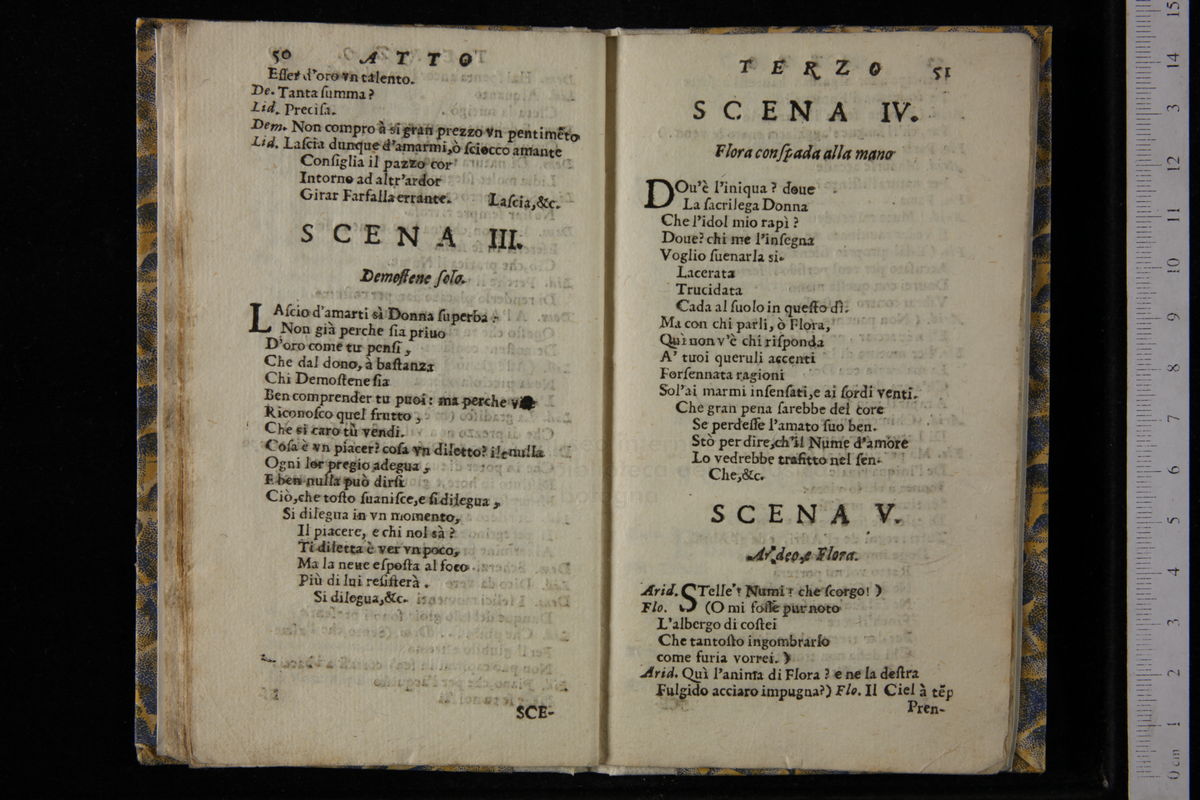 50 ATTO
Esser d'oro vn talento.
De. Tanta summa?
Lid. Precisa.
Dem. Non compro à sì gran prezzo vn pentimẽto
Lid. Lascia dunque d'amarmi, ò sciocco amante
Consiglia il pazzo cor
Intorno ad altr'ardor
Girar Farfalla errante. Lascia,&c.
SCENA III.
Demostene solo.
LAscio d'amarti sì Donna superba:
Non già perche sia priuo
D'oro come tu pensi,
Che dal dono, à bastanza
Chi Demostene sia
Ben comprender tu puoi: ma perche vile
Riconosco quel frutto,
Che si caro tù vendi.
Cosa è vn piacer? cosa vn diletto? il nulla
Ogni lor pregio adegua,
E ben nulla può dirsi
Ciò, che tosto suanisce, e si dilegua,
Si dilegua in vn momento,
Il piacere, e chi nol sà?
Ti diletta è ver vn poco,
Ma la neue esposta al foco
Più di lui resisterà.
Si dilegua,&c.
SCE-
TERZO 51
SCENA IV.
Flora con spada alla mano
DOu'è l'iniqua? doue
La sacrilega Donna
Che l'idol mio rapì?
Doue? chi me l'insegna
Voglio suenarla si.
Lacerata
Trucidata
Cada al suolo in questo dì.
Ma con chi parli, ò Flora,
Quì non v'è chi risponda
A' tuoi queruli accenti
Forsennata ragioni
Sol'ai marmi insensati, e ai sordi venti.
Che gran pena sarebbe del core
Se perdesse l'amato suo ben.
Stò per dire, ch'il Nume d'amore
Lo vedrebbe trafitto nel sen.
Che,&c.
SCENA V.
Arideo, e Flora.
Arid. STelle'? Numi? che scorgo! )
Flo. (O mi fosse pur noto
L'albergo di costei
Che tantosto ingombrarlo
come furia vorrei. )
Arid. Quì l'anima di Flora? e ne la destra
Fulgido acciaro impugna?) Flo. Il Ciel à tẽp
Pren-